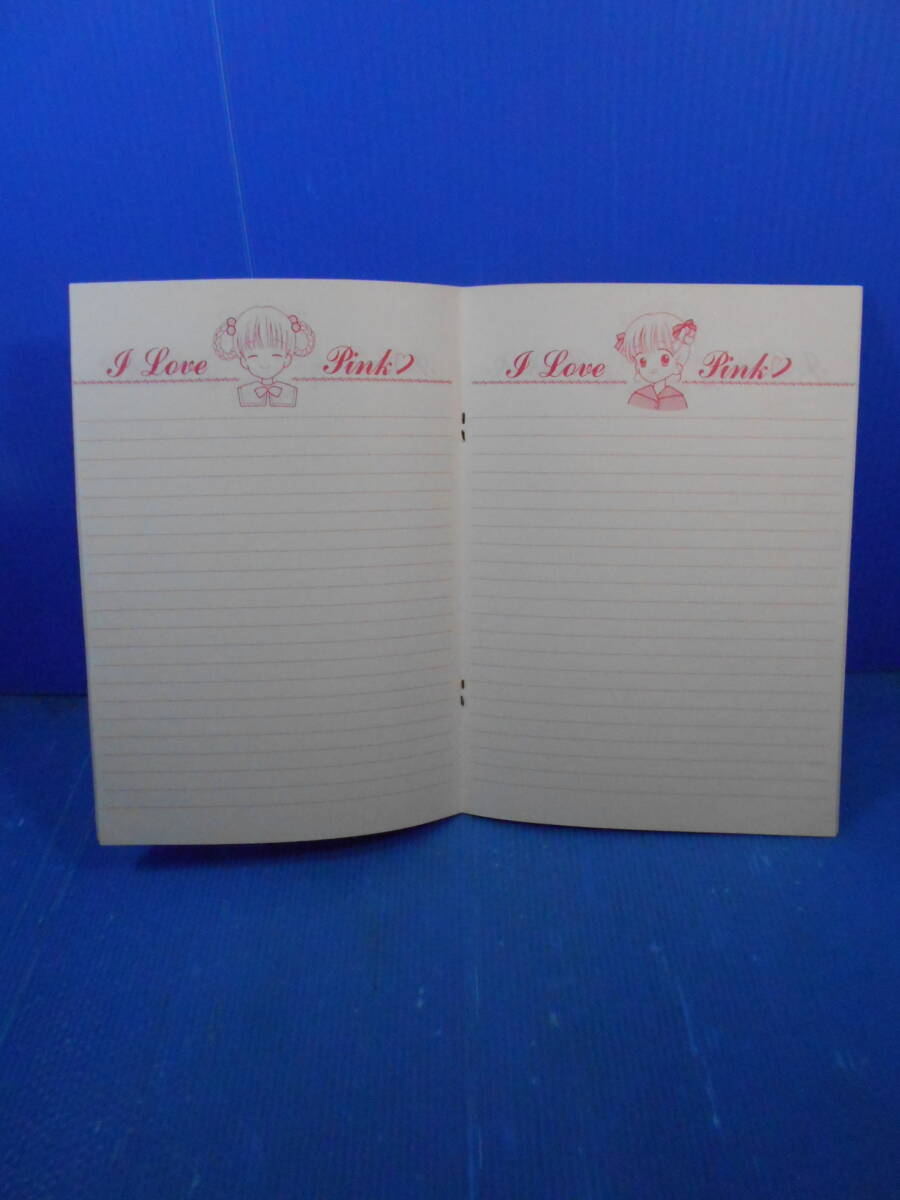 I Love Pink♡
I Love Pink♡